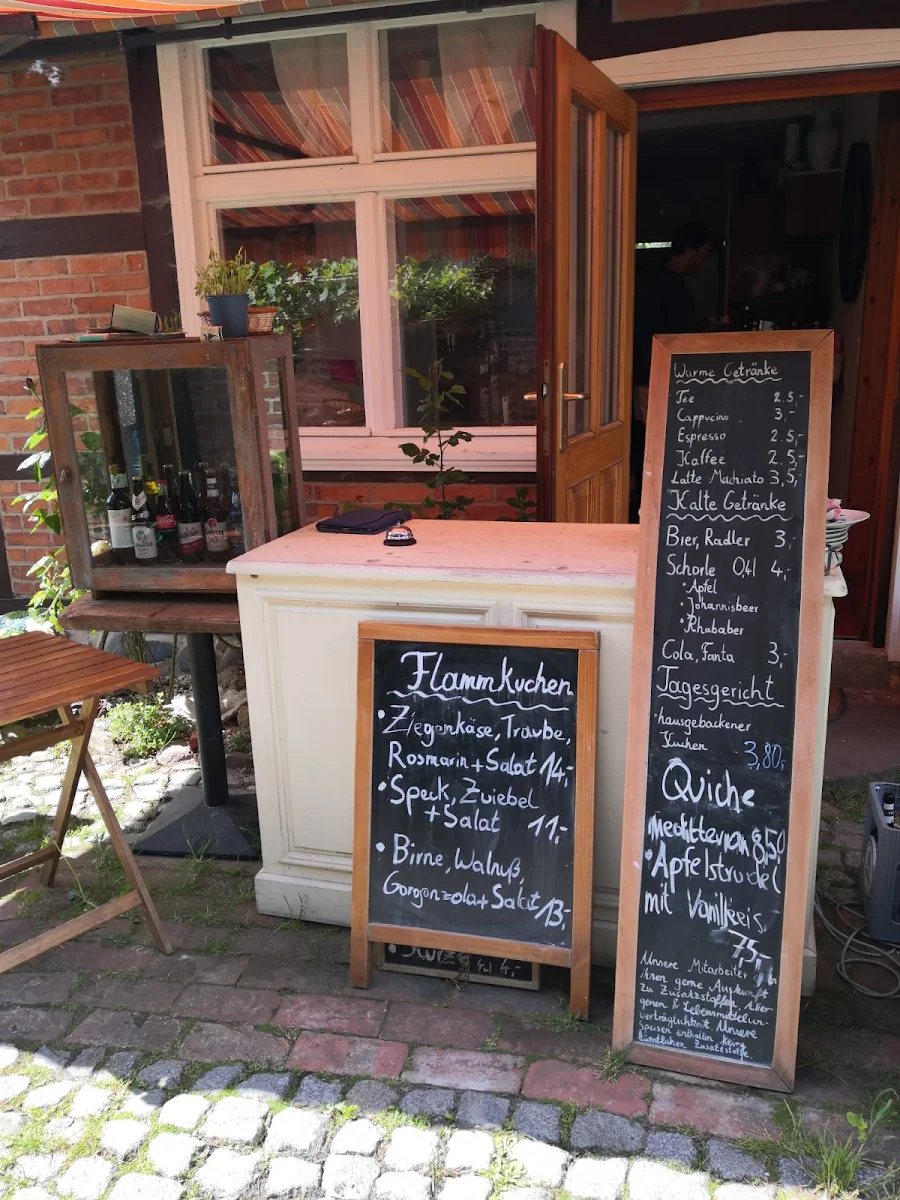 Flammkuchen
• Ziegenkäse, Traube,
Rosmarin + Salat 14,-
• Speck, Zwiebel
+ Salat 11,-
• Birne, Walnuß,
Gorgonzola + Salat 13,-
4,-
Warme Getränke
Tee 2.5,-
Cappucino 3,-
Espresso 2.5,-
Kaffee 2.5,-
Latte Machiato 3,5,-
Kalte Getränke
Bier, Radler 3,-
Schorle 0,4l 4,-
• Apfel
• Johannisbeer
• Rhababer
Cola, Fanta 3,-
Tagesgericht
• hausgebackener
Kuchen 3,80,-
Quiche
mediterran 8,50
• Apfelstrudel
mit Vanilleeis
7,5,-
Unsere Mitarbeiter
ihnen gerne Auskunft
zu Zusatzstoffen, Aller-
genen & Lebensmittelun-
verträglichkeit Unsere
Speisen enthalten keine
künstlichen Zusatzstoffe